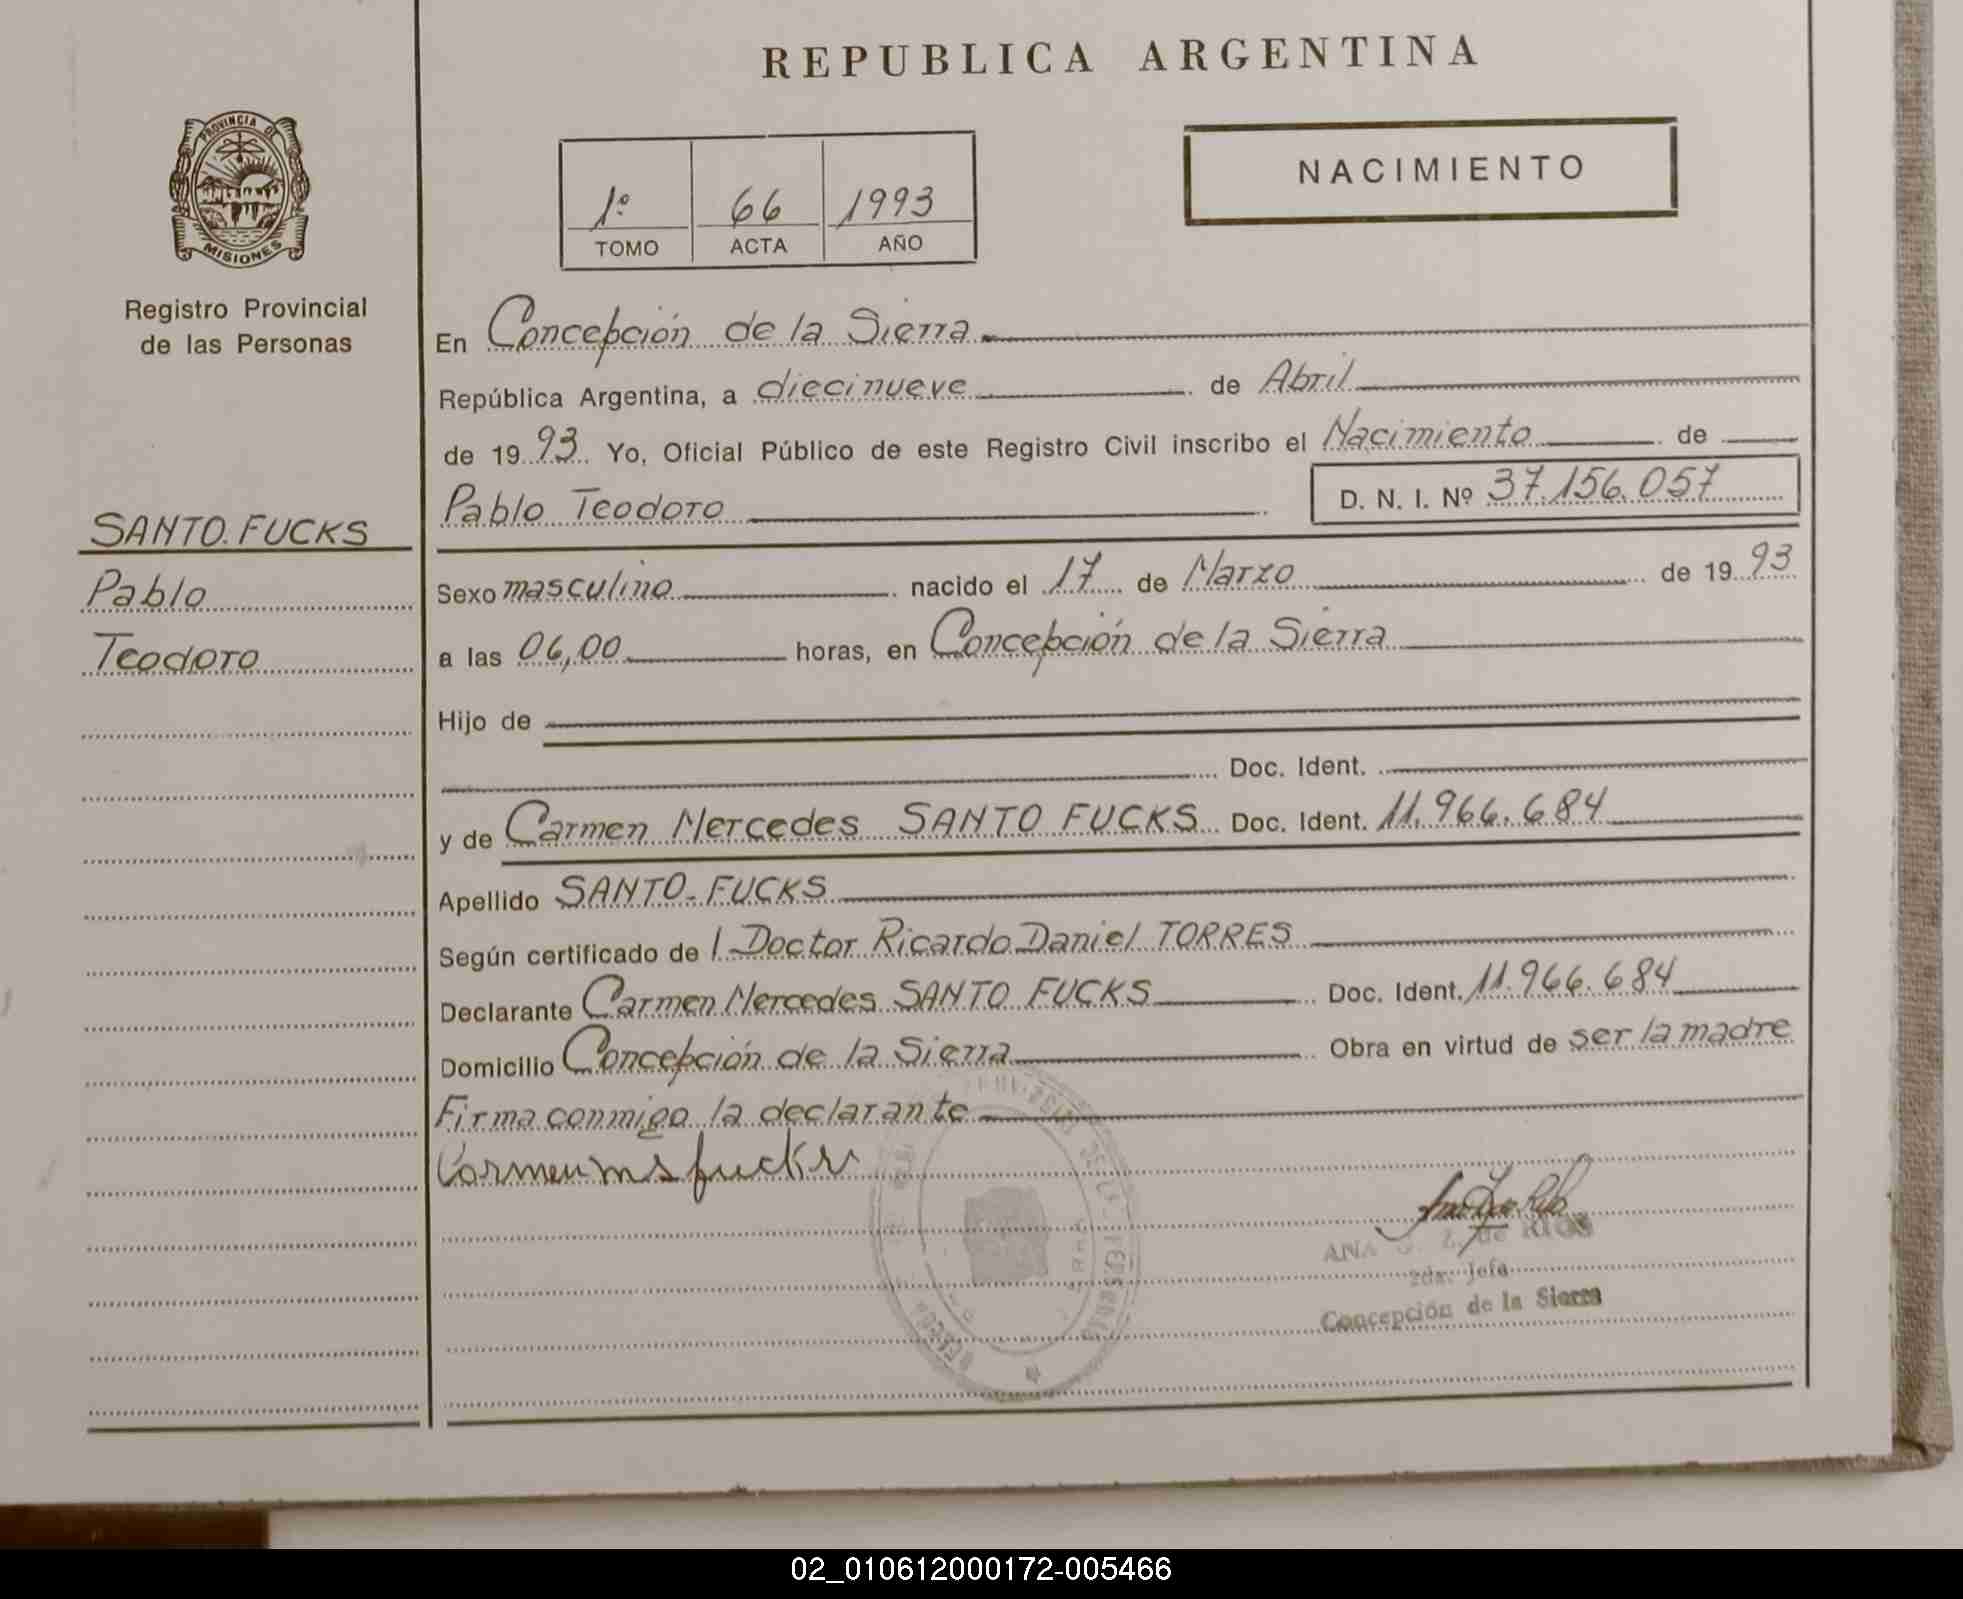 REPUBLICA ARGENTINA
PROVINCIA DE
MISIONES
Registro Provincial
de las Personas
1º 66 1993
TOMO ACTA AÑO
NACIMIENTO
SANTO FUCKS
Pablo
Teodoro
En Concepción de la Sierra
República Argentina, a diecinueve de Abril
de 1993 Yo, Oficial Público de este Registro Civil inscribo el Nacimiento de
Pablo Teodoro D. N. I. Nº 37.156.057
Sexo masculino nacido el 17 de Marzo de 1993
a las 06,00 horas, en Concepción de la Sierra
Hijo de
Doc. Ident.
y de Carmen Mercedes SANTO FUCKS Doc. Ident. 11.966.684
Apellido SANTO FUCKS
Según certificado de l Doctor Ricardo Daniel TORRES
Declarante Carmen Mercedes SANTO FUCKS Doc. Ident. 11.966.684
Domicilio Concepción de la Sierra Obra en virtud de ser la madre
Firma conmigo la declarante
Carmen m s fucks
ANA Z. de RIOS
2da. Jefe
Concepción de la Sierra
02_010612000172-005466